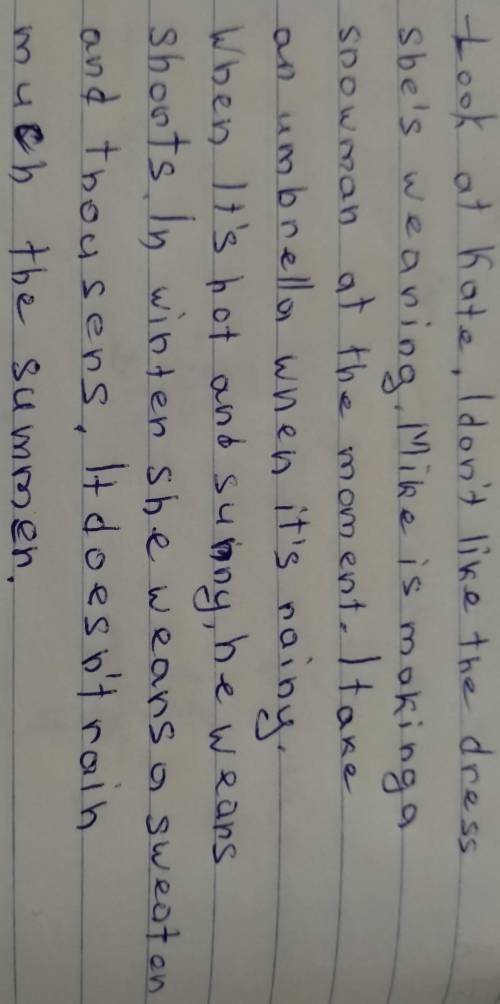 Look at Kate, I don't like the dress
she's wearing. Mike is making a
snowman at the moment. I take
an umbrella when it's rainy.
When It's hot and sunny, he wears
shorts. In winter she wears a sweater
and trousers. It doesn't rain
much the summer.